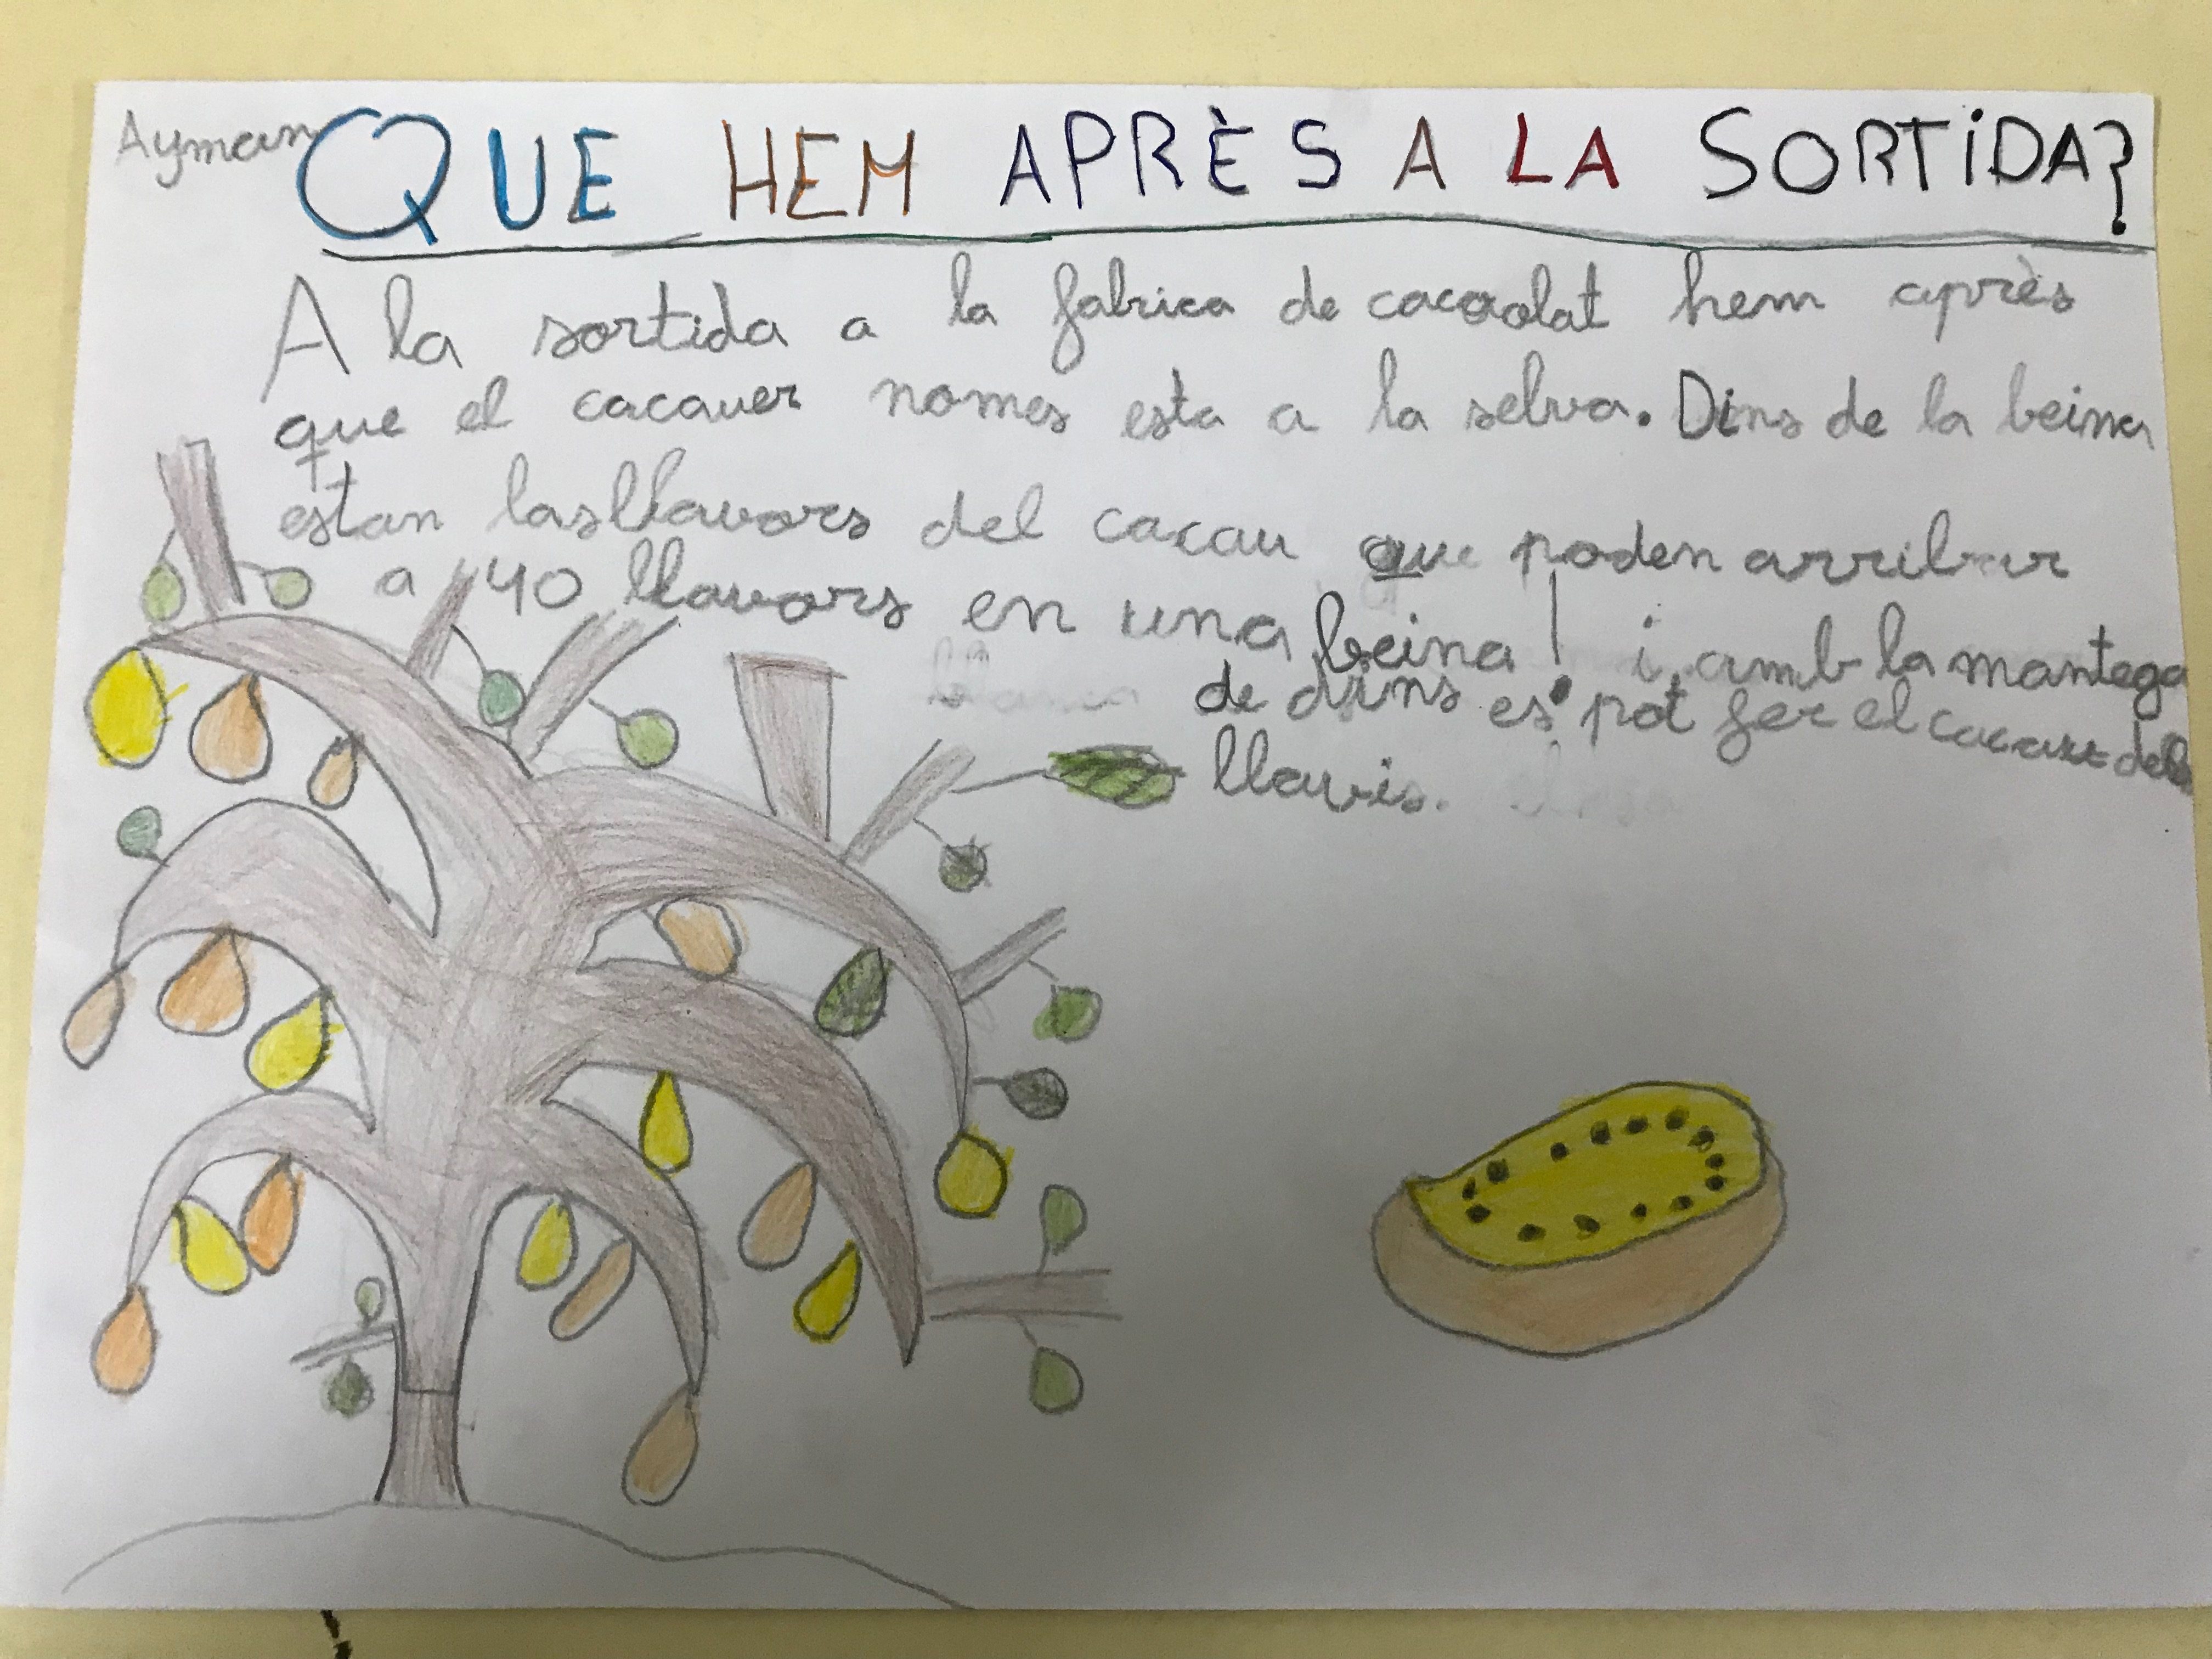 Ayman
QUE HEM APRÈS A LA SORTIDA?
A la sortida a la fabrica de cacaolat hem après
que el cacauer nomes esta a la selva. Dins de la beina
estan las llavors del cacau que poden arribar
a 40 llavors en una beina! i amb la mantega
de dins es pot fer el cacau dels
llavis.